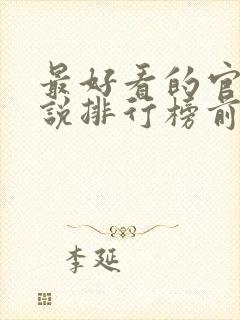 最好看的官
說排行榜前
李延